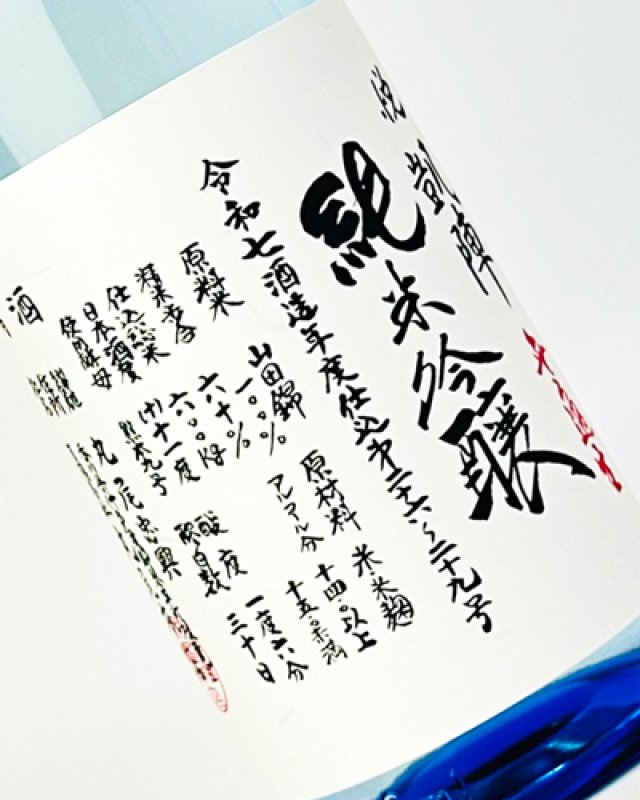 悦 凱陣
純米吟醸
令和七酒造年度仕込第二十六～二十九号
原料米 山田錦 一〇〇％
精米歩合 六十％
仕込総米 六〇〇kg
日本酒度 (+)十一度
使用酵母 熊本九号
原材料 米・米麹
アルコール分 十四・〇以上
十五・〇未満
酸度 一度六分
醪日数 三十日
丸尾忠興
酒